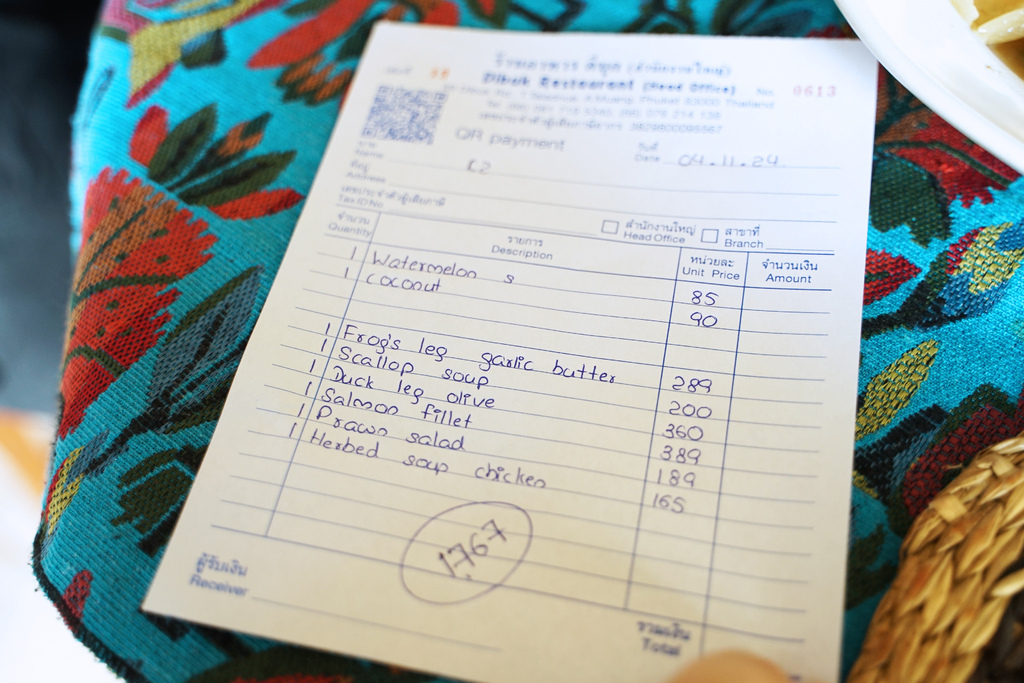 ร้านอาหาร ดีบุก (สำนักงานใหญ่)
Dibuk Restaurant (Head Office) No. 0613
QR payment
วันที่
Date 04.11.24
นาม
Name K2
ที่อยู่
Address
เลขประจำตัวผู้เสียภาษี
Tax ID No
สำนักงานใหญ่ สาขาที่
Head Office Branch
จำนวน รายการ หน่วยละ จำนวนเงิน
Quantity Description Unit Price Amount
1 Watermelon s 85
1 coconut 90
1 Frog's leg garlic butter 289
1 Scallop soup 200
1 Duck leg olive 360
1 Salmon fillet 389
1 Prawn salad 189
1 Herbed soup chicken 165
1767
ผู้รับเงิน
Receiver
รวมเงิน
Total